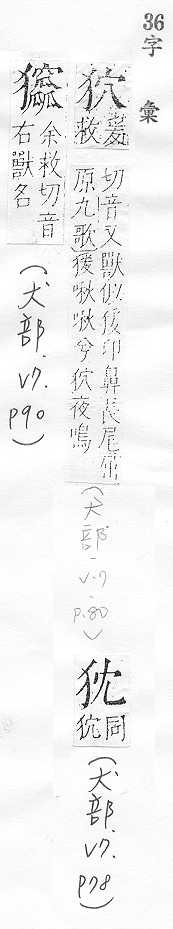 36
字
彙
狖
救切音又獸似猨卬鼻長尾屈
原九歌猨啾啾兮狖夜鳴
(犬部.v.7.p.80)
同狖
(犬部.v7.p78)
余救切音
右獸名
(犬部.v7.p90)